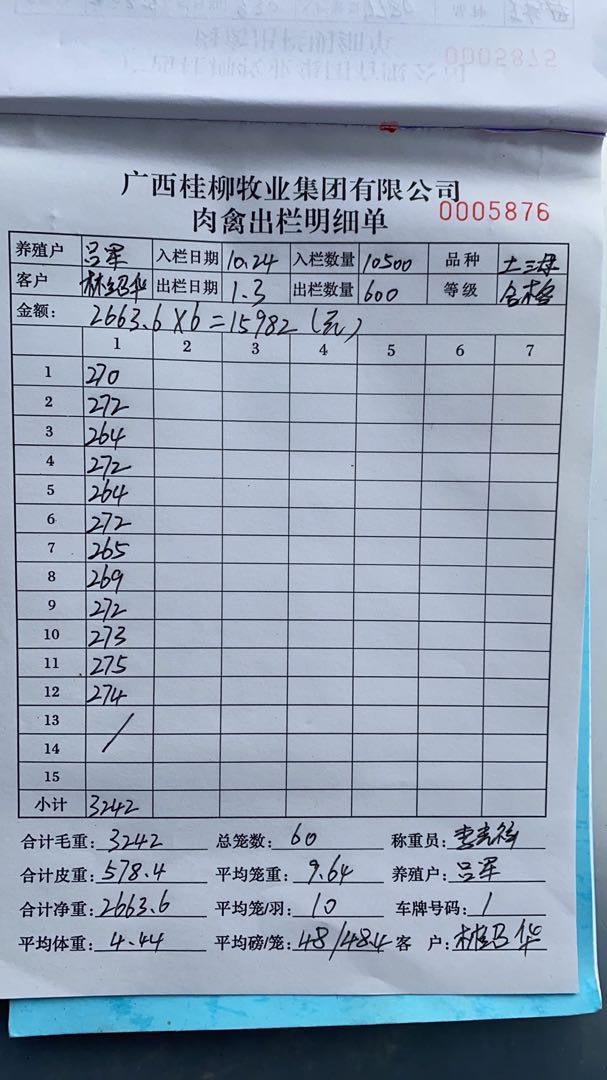 0005875
广西桂柳牧业集团有限公司
肉禽出栏明细单 0005876
养殖户 吕军 入栏日期 10.24 入栏数量 10500 品种 土三母
客户 林绍华 出栏日期 1.3 出栏数量 600 等级 合格
金额: 2663.6×6=15982(元)
1 2 3 4 5 6 7
1 270
2 272
3 264
4 272
5 264
6 272
7 265
8 269
9 272
10 273
11 275
12 274
13 /
14
15
小计 3242
合计毛重: 3242 总笼数: 60 称重员:
合计皮重: 578.4 平均笼重: 9.64 养殖户: 吕军
合计净重: 2663.6 平均笼/羽: 10 车牌号码: 1
平均体重: 4.44 平均磅/笼: 48/48.4 客 户: 林绍华